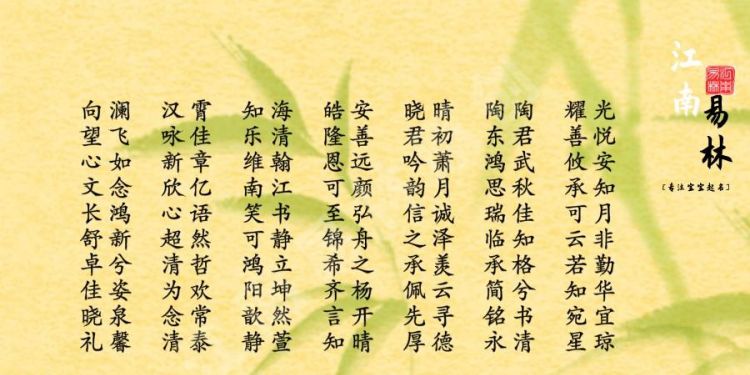 江南
易林
[专注宝宝起名]
光悦安知月非勤华宜琼
耀善攸承可云若知宛星
陶君武秋佳知格兮书清
陶东鸿思瑞临承简铭永
晴初萧月诚泽羡云寻德
晓君吟韵信之承佩先厚
安善远颜弘舟之杨开晴
皓隆恩可至锦希齐言知
海清翰江书静立坤然萱
知乐维南笑可鸿阳歆静
霄佳章亿语然哲欢常泰
汉咏新欣心超清为念清
澜飞如念鸿新兮姿泉馨
向望心文长舒卓佳晓礼